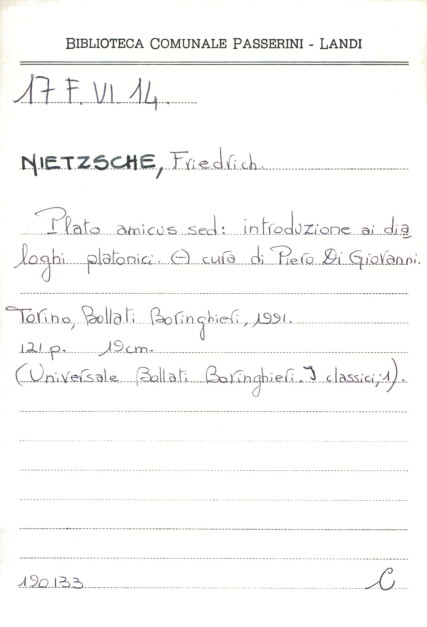 BIBLIOTECA COMUNALE PASSERINI - LANDI
17 F. VI 14.
NIETZSCHE, Friedrich.
Plato amicus sed: introduzione ai dia
loghi platonici. (-) cura di Piero Di Giovanni.
Torino, Bollati Boringhieri, 1991.
121 p. 19 cm.
(Universale Bollati Boringhieri. I classici; 1).
190133 C